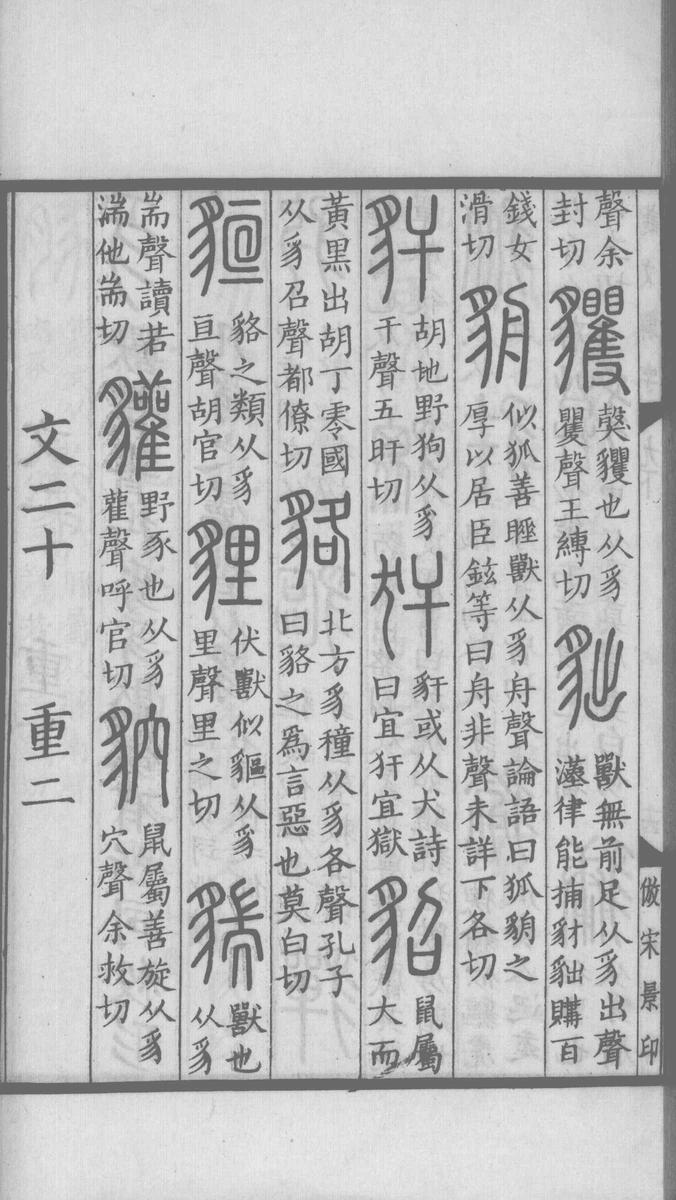 倣宋景印
聲余封切 貜 㺉貜也从豸矍聲王縛切 貀 獸無前足从豸出聲漢律能捕豺貀購百
錢女滑切 貈 似狐善睡獸从豸舟聲論語曰狐貈之厚以居臣鉉等曰舟非聲未詳下各切
豻 胡地野狗从豸干聲五旰切 犴 豻或从犬詩曰宜犴宜獄 貂 鼠屬大而
黃黑出胡丁零國从豸召聲都僚切 貉 北方豸穜从豸各聲孔子曰貉之爲言惡也莫白切
貆 貉之類从豸亘聲胡官切 貍 伏獸似貙从豸里聲里之切 貒 獸也从豸
耑聲讀若湍他耑切 貛 野豕也从豸雚聲呼官切 貁 鼠屬善旋从豸穴聲余救切
文二十 重二